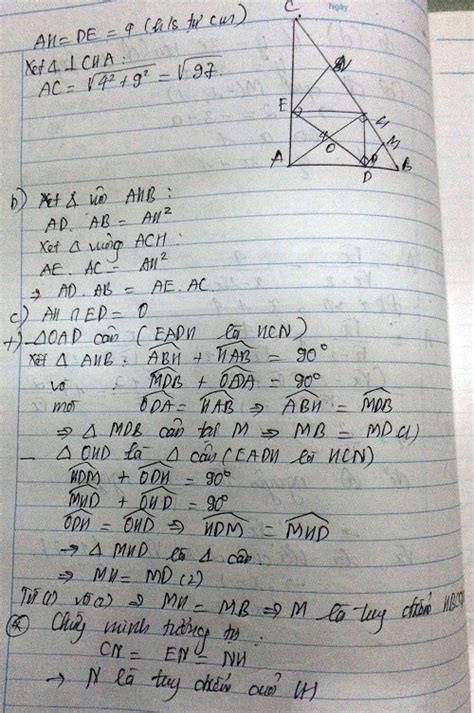 Ngày
AH = DE = 4 (
Xét Δ ⊥ CHA :
AC = √4² + 9² = √97.
C
N
E
H
M
O
A
D
B
b) Xét Δ AHB :
AD. AB = AH²
Xét Δ vuông ACH :
AE. AC = AH²
⇒ AD. AB = AE. AC
c) AH ∩ ED = O
+) ΔOAD cân (EADH là HCN)
Xét Δ AHB: ABH + HAB = 90°
và MDB + ODA = 90°
mà ODA = HAB ⇒ ABH = MDB
⇒ Δ MDB cân tại M ⇒ MB = MD (1)
_ Δ OHD là Δ cân (EADH là HCN)
HDM + ODH = 90°
MHD + OHD = 90°
ODH = OHD ⇒ HDM = MHD
→ Δ MHD là Δ cân
⇒ MH = MD (2)
Từ (1) và (2) ⇒ MH = MB ⇒ M là
Chứng minh tương tự :
CN = EN = NH
→ N là CH